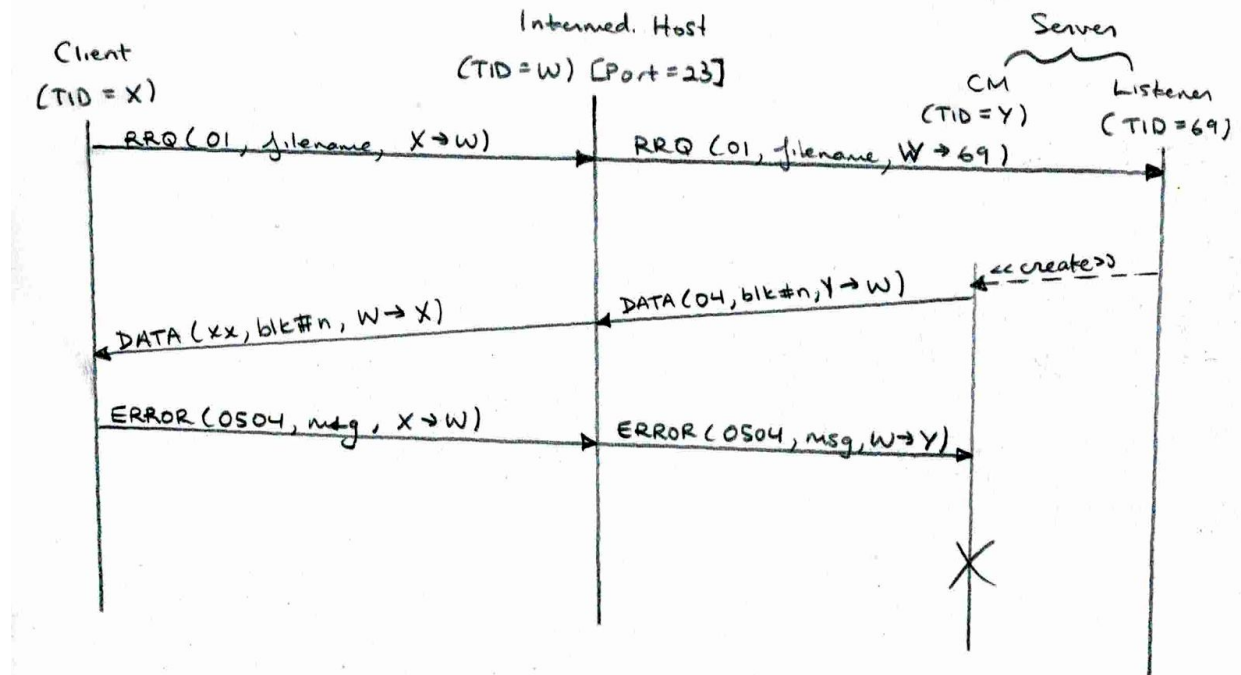 Client
(TID = X)
Intermed. Host
(TID = W) [Port = 23]
Server
CM
(TID = Y)
Listener
(TID = 69)
RRQ (01, filename, X → W)
RRQ (01, filename, W → 69)
<<create>>
DATA (04, blk#n, Y → W)
DATA (xx, blk#n, W → X)
ERROR (0504, msg, X → W)
ERROR (0504, msg, W → Y)
X